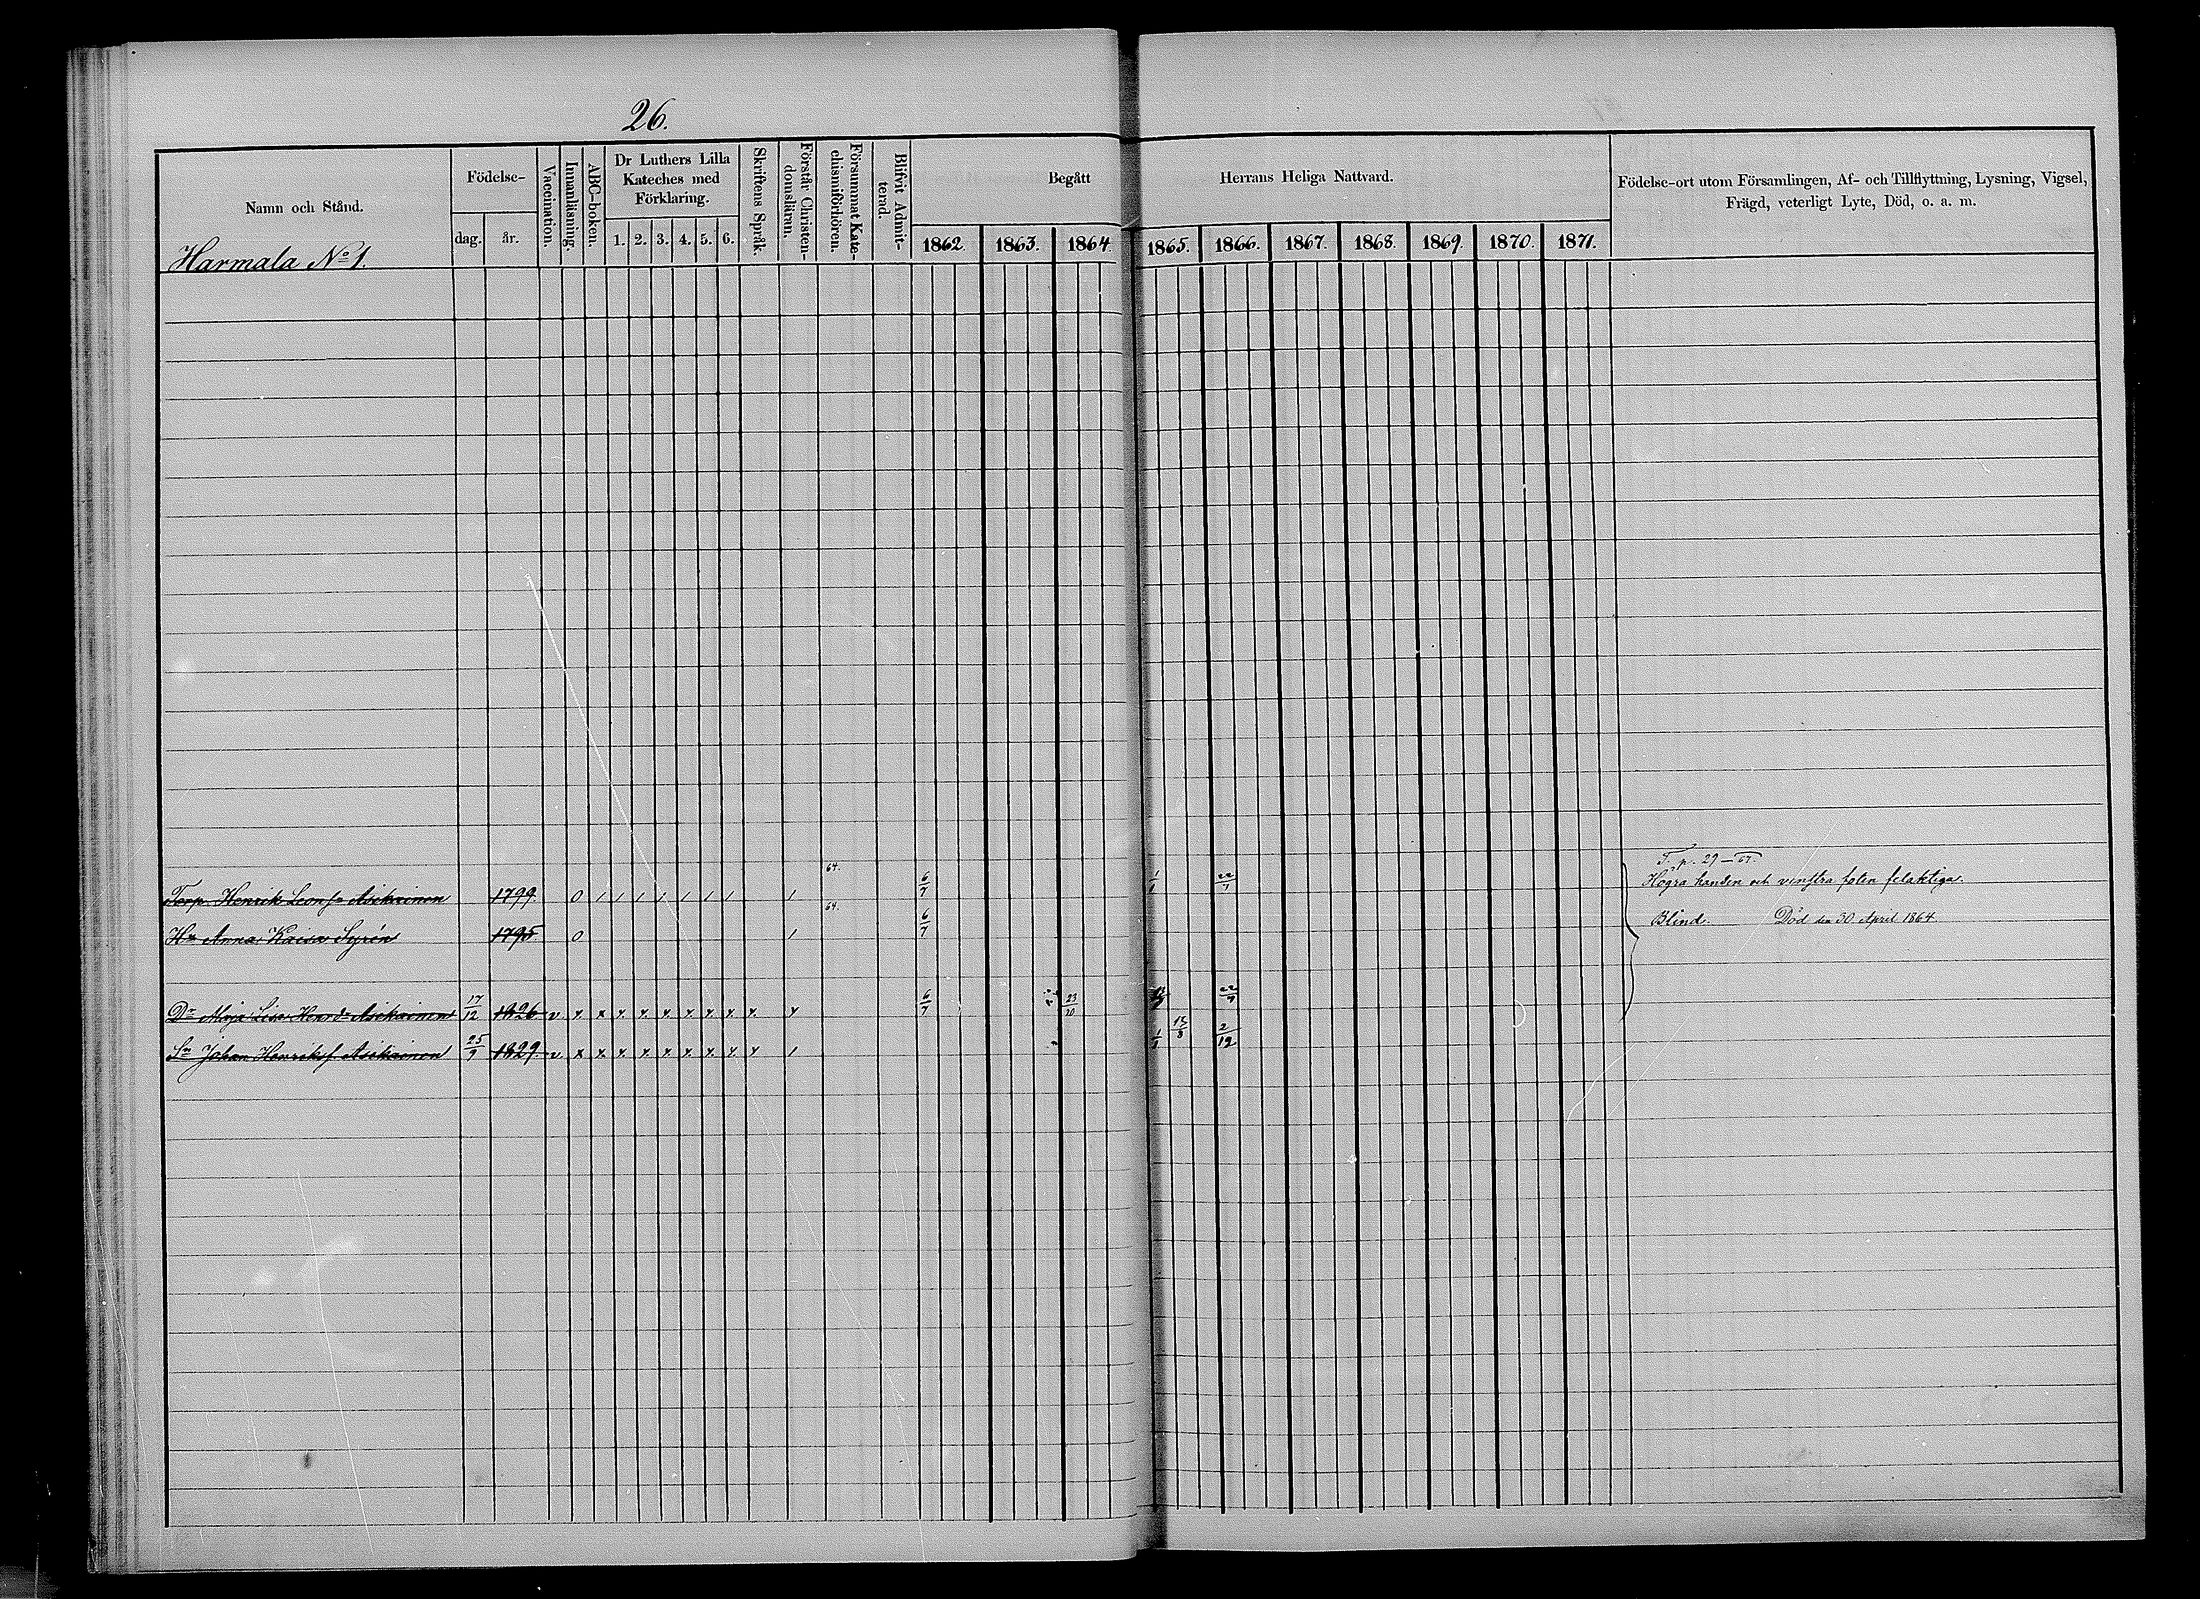 26.
Namn och Stånd.
Födelse-
dag. år.
Vaccination.
Innanläsning.
ABC-boken.
Dr Luthers Lilla
Kateches med
Förklaring.
1. 2. 3. 4. 5. 6.
Skriftens Språk.
Förstår Christen-
domsläran.
Försummat Kate-
chismiförhören.
Blifvit Admit-
terad.
Begått Herrans Heliga Nattvard.
1862. 1863. 1864. 1865. 1866. 1867. 1868. 1869. 1870. 1871.
Födelse-ort utom Församlingen, Af- och Tillflyttning, Lysning, Vigsel,
Frägd, veterligt Lyte, Död, o. a. m.
Harmala No 1.
T. p. 29
Torp. Henrik Leonss Asikainen 1799 0 / / / / / / / / 64. 6/7 Högra handen och venstra foten felaktiga.
Hu Anna Kaisa Syrén 1795 0 / 64. 6/7 Blind. Död den 30 April 1864.
Dr Maja Lisa Henrdr Asikainen 17/12 1826 v x x x x x x x x x x 6/7 23/10
Sn Johan Henrikss Asikainen 25/9 1829. v x x x x x x x x x / 13/8 2/12